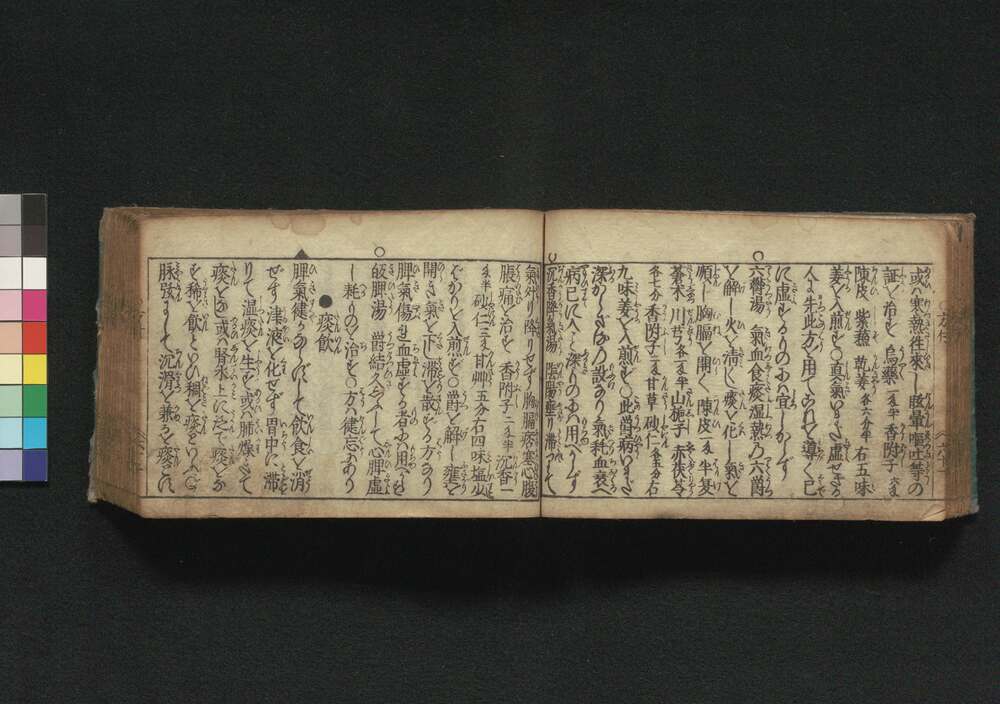 或ハ寒熱往來し眩暈嘔吐等の
証を治す 烏藥一匁半 香附子六匁
陳皮 紫蘇 乾姜各六分半 右五味
姜を入煎ず〇真氣いまだ虚せざる
人よ先此方を用てこれを導く已
に虚するものにハ宜しからず
六欝湯 氣血食痰湿熱の六欝
を解し火を清し痰を化し氣を
順し胸膈を開く 陳皮一匁半 夏
蒼朮 川芎各一匁半 山梔子 赤茯苓
各七分 香附子二匁 甘草 砂仁各五分 右
九味姜を入煎ず〇此欝病いまだ
深からざるに設なり氣耗血衰へ
病已に入こと深きものに用べからず
沉香降氣湯 陰陽壅り滞つて
氣升り降りせず胸膈痞塞心腹
脹痛を治す 香附子二匁半 沉香一
匁半 砂仁三匁 甘艸五分 右四味塩少
ばかりを入煎ず〇欝を解し壅を
開き氣を下し滞を散ずる方なり
脾氣傷れ血虚する者に用べからず
皈脾湯 欝結久ふして心脾虚
し耗ものを治す〇方ハ健忘にあり
痰飲
脾氣健かならずして飲食を消
せず津液を化せず胃中に滞
りて湿痰を生ず或ハ肺燥きて
痰となり或ハ腎水上に泛て痰となる
を稀を飲といひ稠を痰といふ〇
脉弦にして沉滑を兼るを痰とす